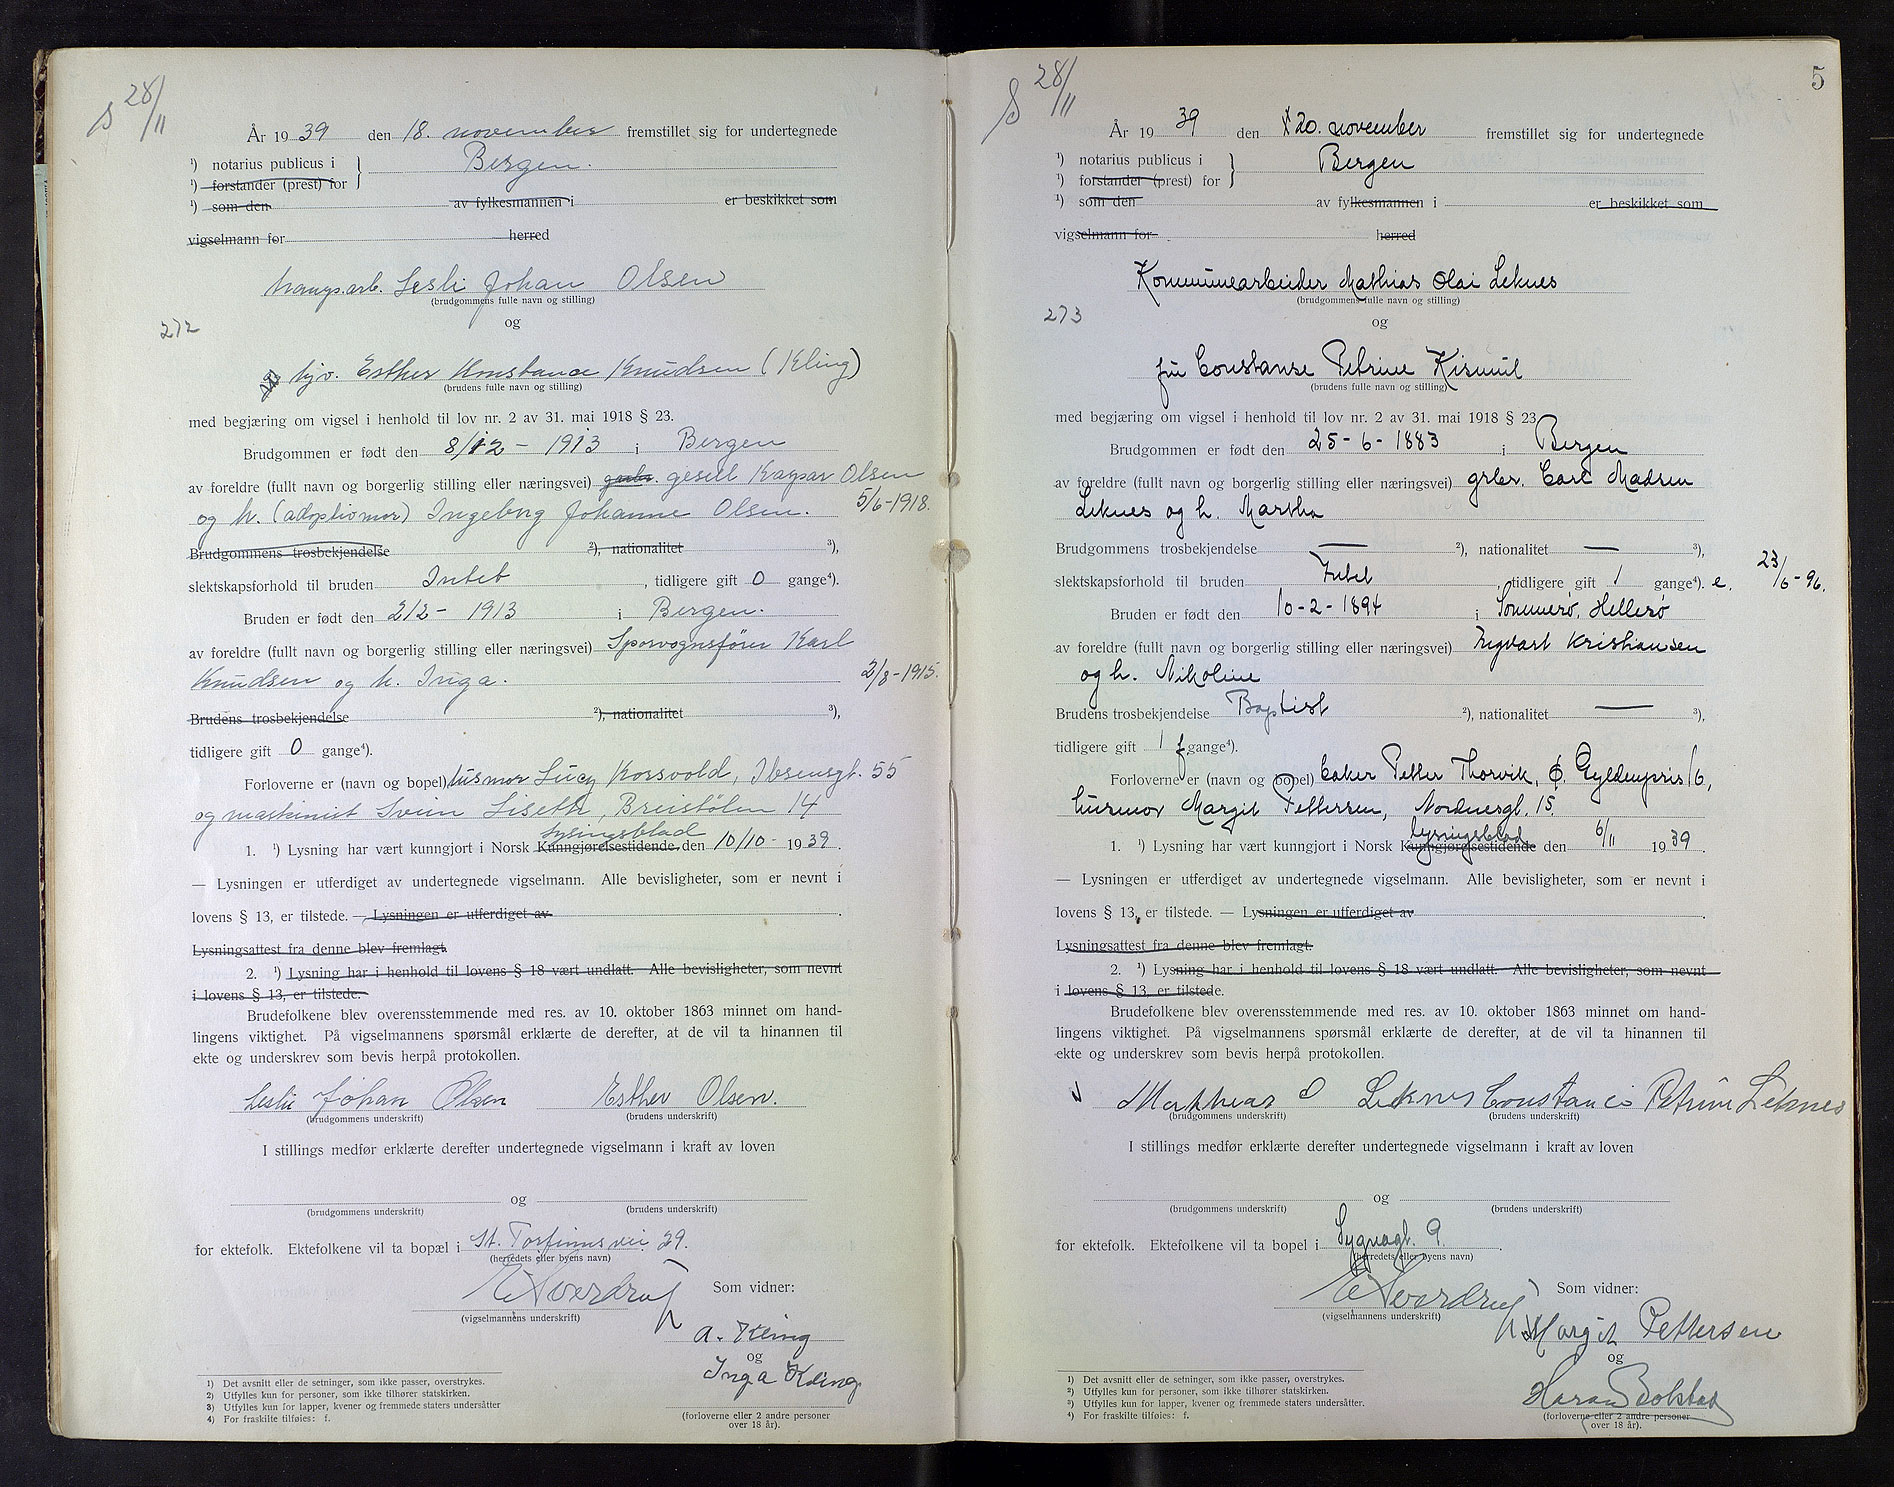 28/11
År 1939 den 18. november fremstillet sig for undertegnede
¹) notarius publicus i } Bergen.
¹) forstander (prest) for
¹) som den av fylkesmannen i er beskikket som
vigselmann for herred
Lesli Johan Olsen
(brudgommens fulle navn og stilling)
272
og
Esther Konstance Knudsen (Kling)
(brudens fulle navn og stilling)
med begjæring om vigsel i henhold til lov nr. 2 av 31. mai 1918 § 23.
Brudgommen er født den 8/12 - 1913 i Bergen
av foreldre (fullt navn og borgerlig stilling eller næringsvei) gesell Kaspar Olsen
og h. (adoptivmor) Ingeborg Johanne Olsen. 5/6-1918.
Brudgommens trosbekjendelse ²), nationalitet ³),
slektskapsforhold til bruden Intet, tidligere gift 0 gange⁴).
Bruden er født den 2/2 - 1913 i Bergen.
av foreldre (fullt navn og borgerlig stilling eller næringsvei) Sporvognsfører Karl
Knudsen og h. Inga. 2/8-1915.
Brudens trosbekjendelse ²), nationalitet ³),
tidligere gift 0 gange⁴).
Forloverne er (navn og bopel) husmor Lucy Korsvold, Ibsensgt. 55
og maskinist Svein Liseth, Breistølen 14
lysingsblad
1. ¹) Lysning har vært kunngjort i Norsk Kunngjørelsestidende den 10/10 - 1939.
— Lysningen er utferdiget av undertegnede vigselmann. Alle bevisligheter, som er nevnt i
lovens § 13, er tilstede. — Lysningen er utferdiget av
Lysningsattest fra denne blev fremlagt.
2. ¹) Lysning har i henhold til lovens § 18 vært undlatt. Alle bevisligheter, som nevnt
i lovens § 13, er tilstede.
Brudefolkene blev overensstemmende med res. av 10. oktober 1863 minnet om hand-
lingens viktighet. På vigselmannens spørsmål erklærte de derefter, at de vil ta hinannen til
ekte og underskrev som bevis herpå protokollen.
Leslie Johan Olsen Esther Olsen.
(brudgommens underskrift) (brudens underskrift)
I stillings medfør erklærte derefter undertegnede vigselmann i kraft av loven
og
(brudgommens underskrift) (brudens underskrift)
for ektefolk. Ektefolkene vil ta bopæl i St. Torfinns vei 29.
(herredets eller byens navn)
Som vidner:
(vigselmannens underskrift)
A. Kling
og
Inga Kling
(forloverne eller 2 andre personer
over 18 år).
1) Det avsnitt eller de setninger, som ikke passer, overstrykes.
2) Utfylles kun for personer, som ikke tilhører statskirken.
3) Utfylles kun for lapper, kvener og fremmede staters undersåtter
4) For fraskilte tilføies: f.
5
28/11
År 1939 den 20. november fremstillet sig for undertegnede
¹) notarius publicus i } Bergen
¹) forstander (prest) for
¹) som den av fylkesmannen i er beskikket som
vigselmann for herred
Kommunearbeider Mathias Olai Leknes
(brudgommens fulle navn og stilling)
273
og
fru Constanse Petrine Kismul
(brudens fulle navn og stilling)
med begjæring om vigsel i henhold til lov nr. 2 av 31. mai 1918 § 23.
Brudgommen er født den 25-6-1883 i Bergen
av foreldre (fullt navn og borgerlig stilling eller næringsvei) grbr. Carl Madsen
Leknes og h. Martha
Brudgommens trosbekjendelse — ²), nationalitet — ³),
slektskapsforhold til bruden Intet, tidligere gift 1 gange⁴). e. 23/6-96.
Bruden er født den 10-2-1894 i Sommerø, Hellesø
av foreldre (fullt navn og borgerlig stilling eller næringsvei) Ingvart Kristiansen
og h. Nikoline
Brudens trosbekjendelse Baptist ²), nationalitet — ³),
tidligere gift 1 f gange⁴).
Forloverne er (navn og bopel) baker Petter Thorvik, Ø. Gyldenpris 16,
husmor Margit Pettersen, Nordnesgt. 15.
lysningsblad
1. ¹) Lysning har vært kunngjort i Norsk Kunngjørelsestidende den 6/11 1939.
— Lysningen er utferdiget av undertegnede vigselmann. Alle bevisligheter, som er nevnt i
lovens § 13, er tilstede. — Lysningen er utferdiget av
Lysningsattest fra denne blev fremlagt.
2. ¹) Lysning har i henhold til lovens § 18 vært undlatt. Alle bevisligheter, som nevnt
i lovens § 13, er tilstede.
Brudefolkene blev overensstemmende med res. av 10. oktober 1863 minnet om hand-
lingens viktighet. På vigselmannens spørsmål erklærte de derefter, at de vil ta hinannen til
ekte og underskrev som bevis herpå protokollen.
Mathias O Leknes Constance Petrine Leknes
(brudgommens underskrift) (brudens underskrift)
I stillings medfør erklærte derefter undertegnede vigselmann i kraft av loven
og
(brudgommens underskrift) (brudens underskrift)
for ektefolk. Ektefolkene vil ta bopel i Sygnagt. 9.
(herredets eller byens navn)
Som vidner:
(vigselmannens underskrift)
Margit Pettersen
og
Bolstad
(forloverne eller 2 andre personer
over 18 år).
¹) Det avsnitt eller de setninger, som ikke passer, overstrykes.
²) Utfylles kun for personer, som ikke tilhører statskirken.
³) Utfylles kun for lapper, kvener og fremmede staters undersåtter.
⁴) For fraskilte tilføies: f.